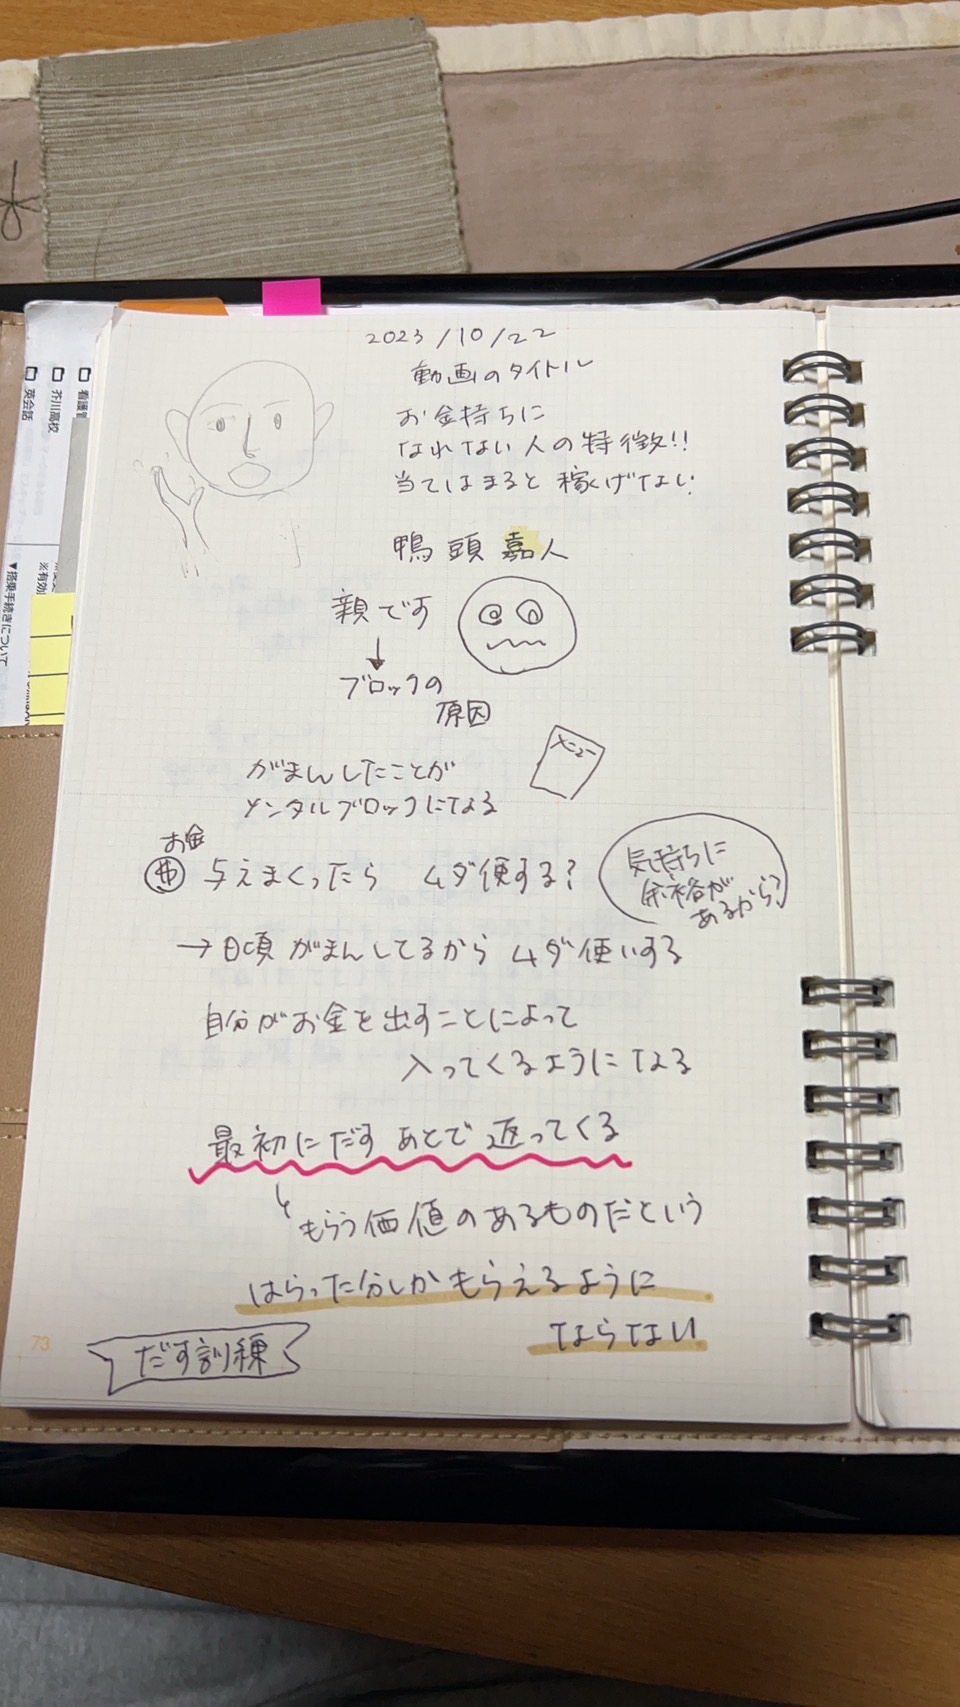 2023/10/22
動画のタイトル
お金持ちに
なれない人の特徴!!
当てはまると稼げない
鴨頭嘉人
親です
↓
ブロックの
原因
メニュー
がまんしたことが
メンタルブロックになる
お金
与えまくったら ムダ使する?
気持ちに
余裕が
あるから?
→日頃がまんしてるから ムダ使いする
自分がお金を出すことによって
入ってくるようになる
最初にだす あとで返ってくる
もらう価値のあるものだという
はらった分しかもらえるように
ならない
だす訓練
73
看護管
芥川高校
英会話
▼搭乗手続きについて
※有効